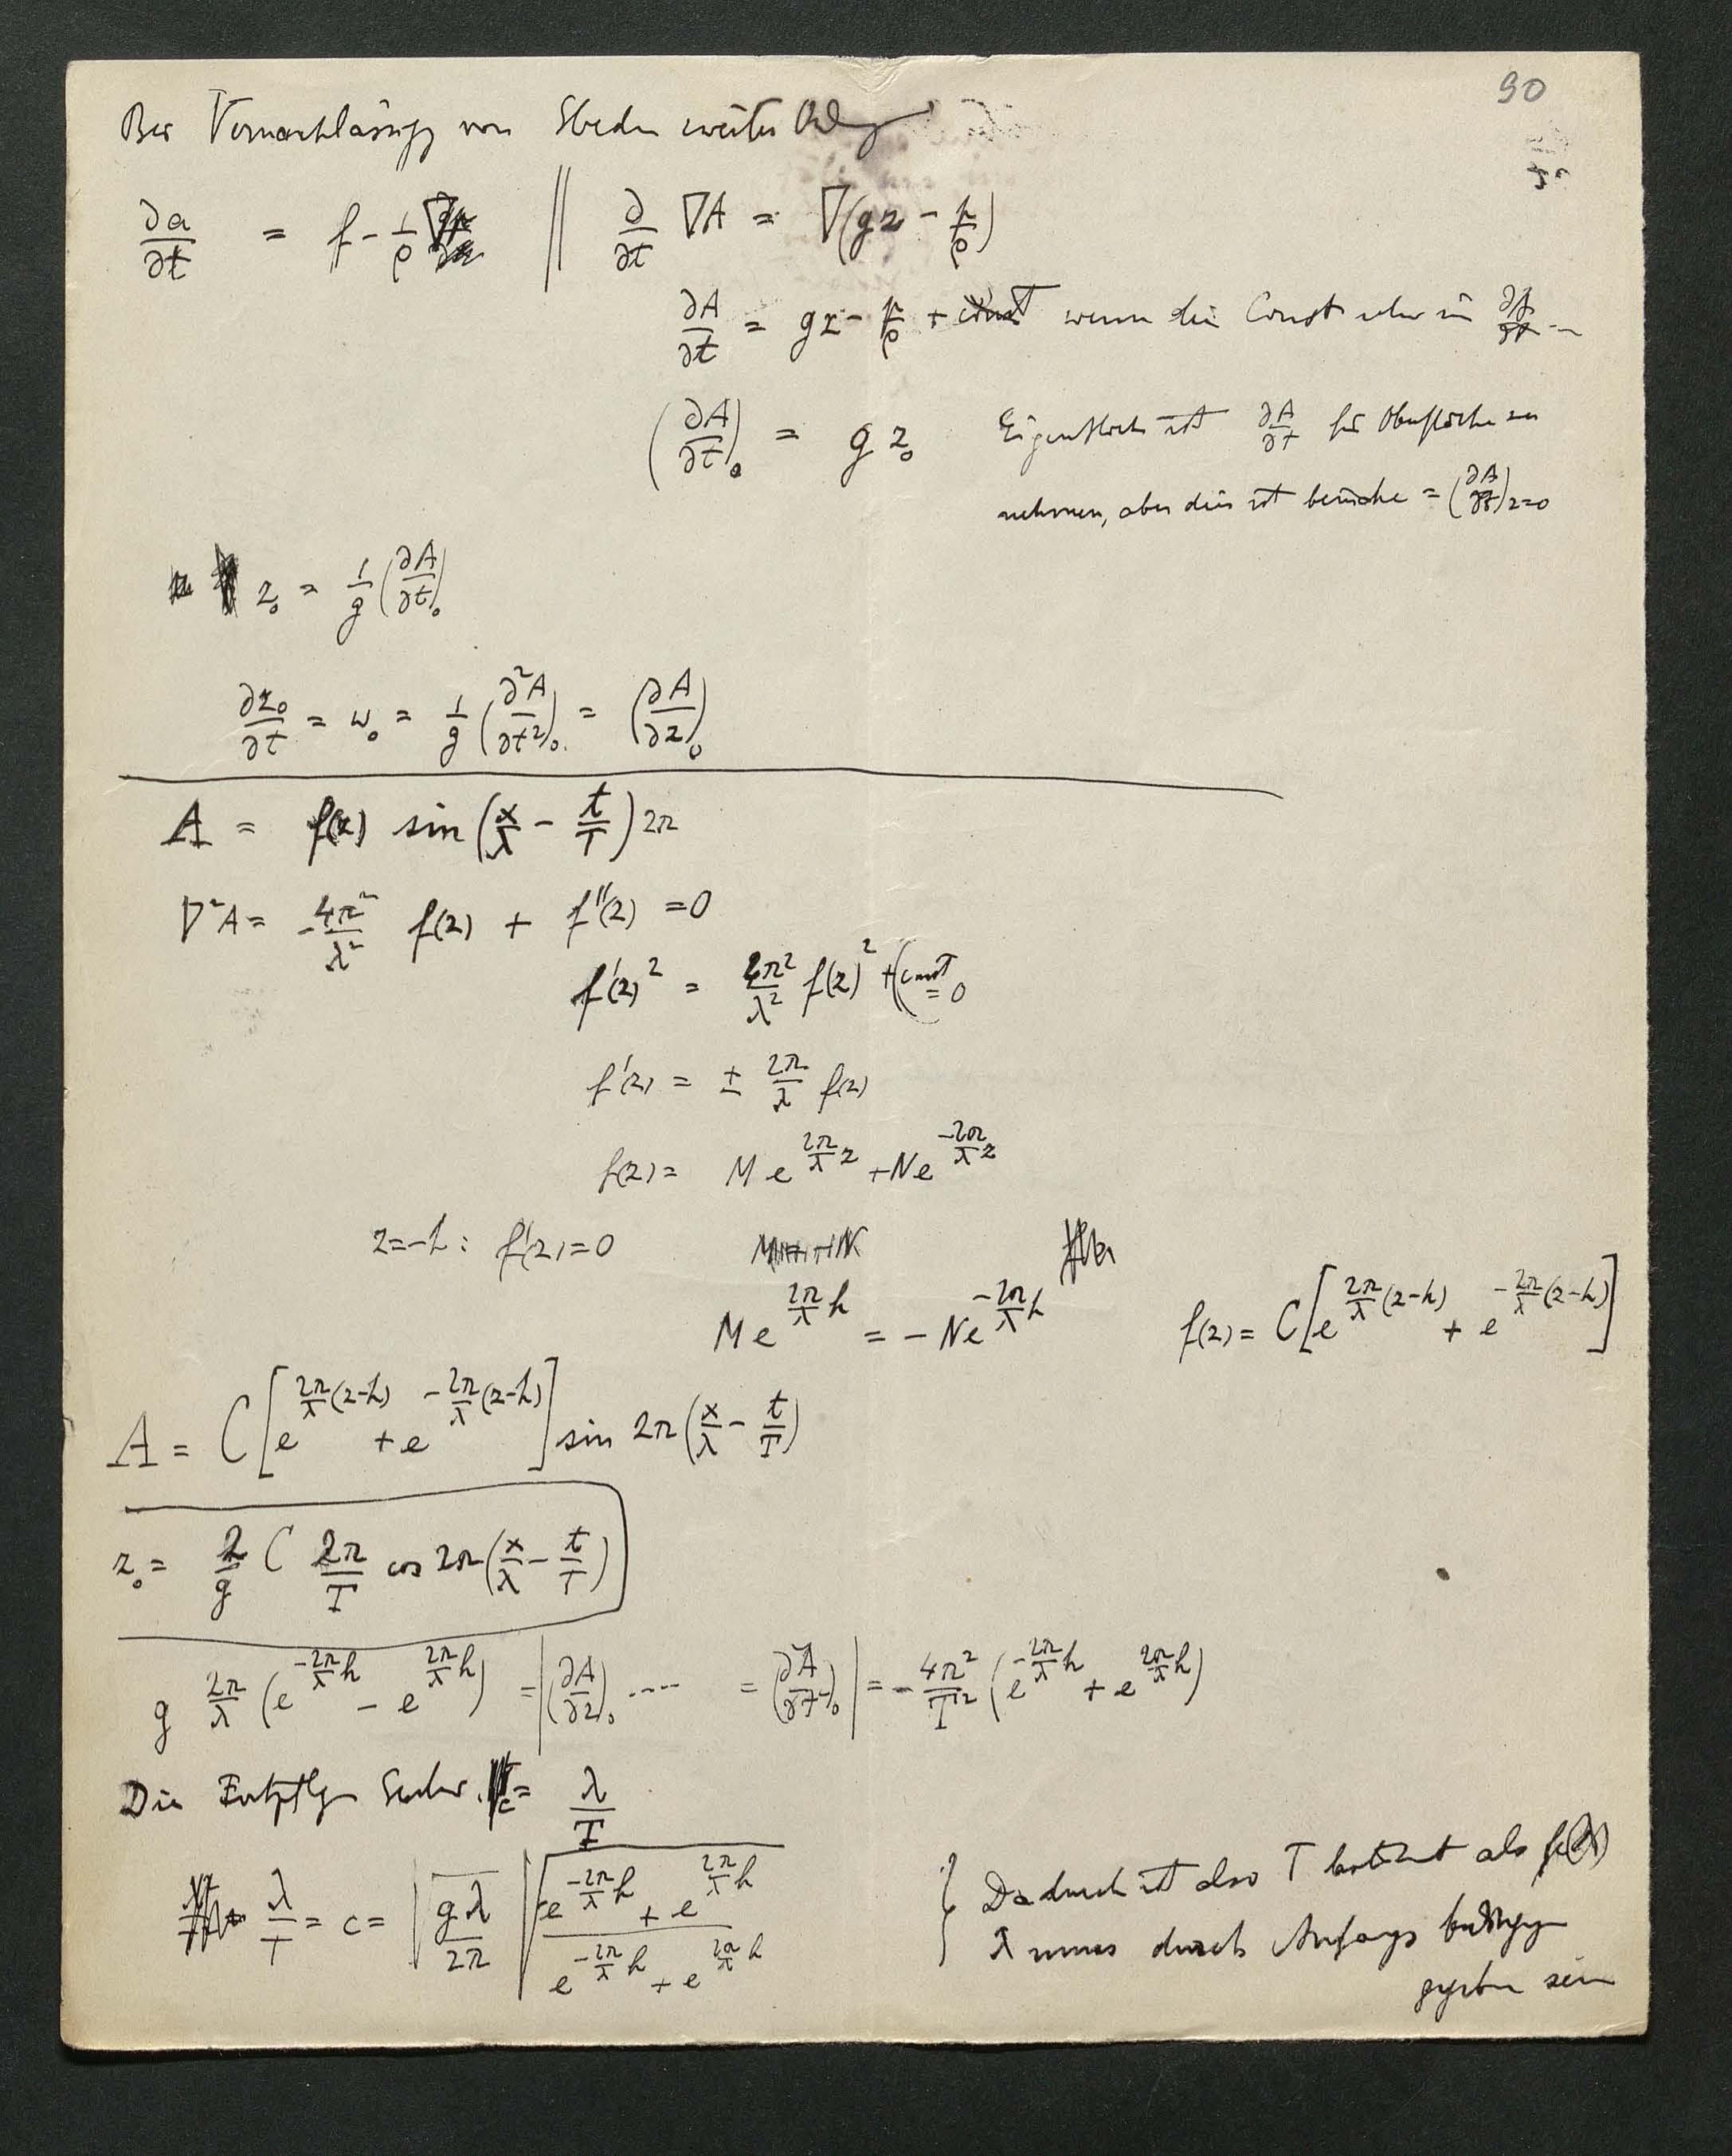 90
Bei Vernachlässigg von Gliedern zweiter Ordng
∂a/∂t = f − 1/ρ ∇p || ∂/∂t ∇A = ∇(gz − p/ρ)
∂A/∂t = gz − p/ρ + const wenn die Const in ∂A/∂t
(∂A/∂t)₀ = g z₀ Eigentlich ist ∂A/∂t für Oberfläche zu
nehmen, aber dies ist beinahe = (∂A/∂t)z=0
z₀ = 1/g (∂A/∂t)₀
∂z₀/∂t = w₀ = 1/g (∂²A/∂t²)₀. = (∂A/∂z)₀
A = f(z) sin (x/λ − t/T) 2π
∇²A = −4π²/λ² f(z) + f''(z) = 0
f'(z)² = 4π²/λ² f(z)² + (const = 0
f'(z) = ± 2π/λ f(z)
f(z) = M e^(2π/λ z) + N e^(−2π/λ z)
z=−h : f'(z) = 0
M e^(2π/λ h) = − N e^(−2π/λ h) f(z) = C [e^(2π/λ (z−h)) + e^(−2π/λ (z−h))]
A = C [e^(2π/λ (z−h)) + e^(−2π/λ (z−h))] sin 2π (x/λ − t/T)
z₀ = 2/g C 2π/T cos 2π (x/λ − t/T)
g 2π/λ (e^(−2π/λ h) − e^(2π/λ h)) = |(∂A/∂z)₀ .... = (∂²A/∂t²)₀| = − 4π²/T² (e^(−2π/λ h) + e^(2π/λ h))
Die c = λ/T
λ/T = c = √(gλ/2π) √((e^(−2π/λ h) + e^(2π/λ h))/(e^(−2π/λ h) + e^(2π/λ h))) } Dadurch ist also T bestimmt als f(λ)
λ muss durch Anfangs bedinggen
gegeben sein